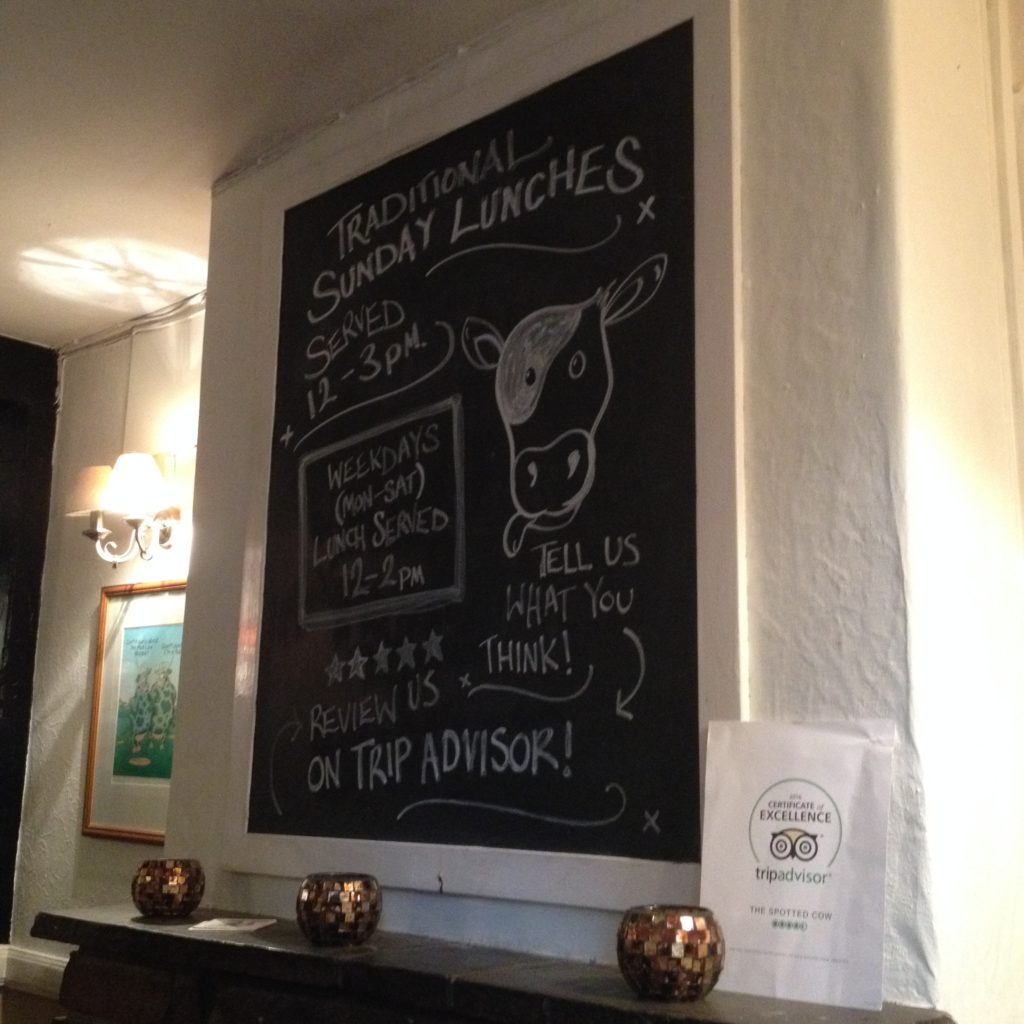 TRADITIONAL
SUNDAY LUNCHES
SERVED
12-3PM.
WEEKDAYS
(MON-SAT)
LUNCH SERVED
12-2PM
TELL US
WHAT YOU
THINK!
REVIEW US
ON TRIP ADVISOR!
CERTIFICATE of
EXCELLENCE
tripadvisor
THE SPOTTED COW